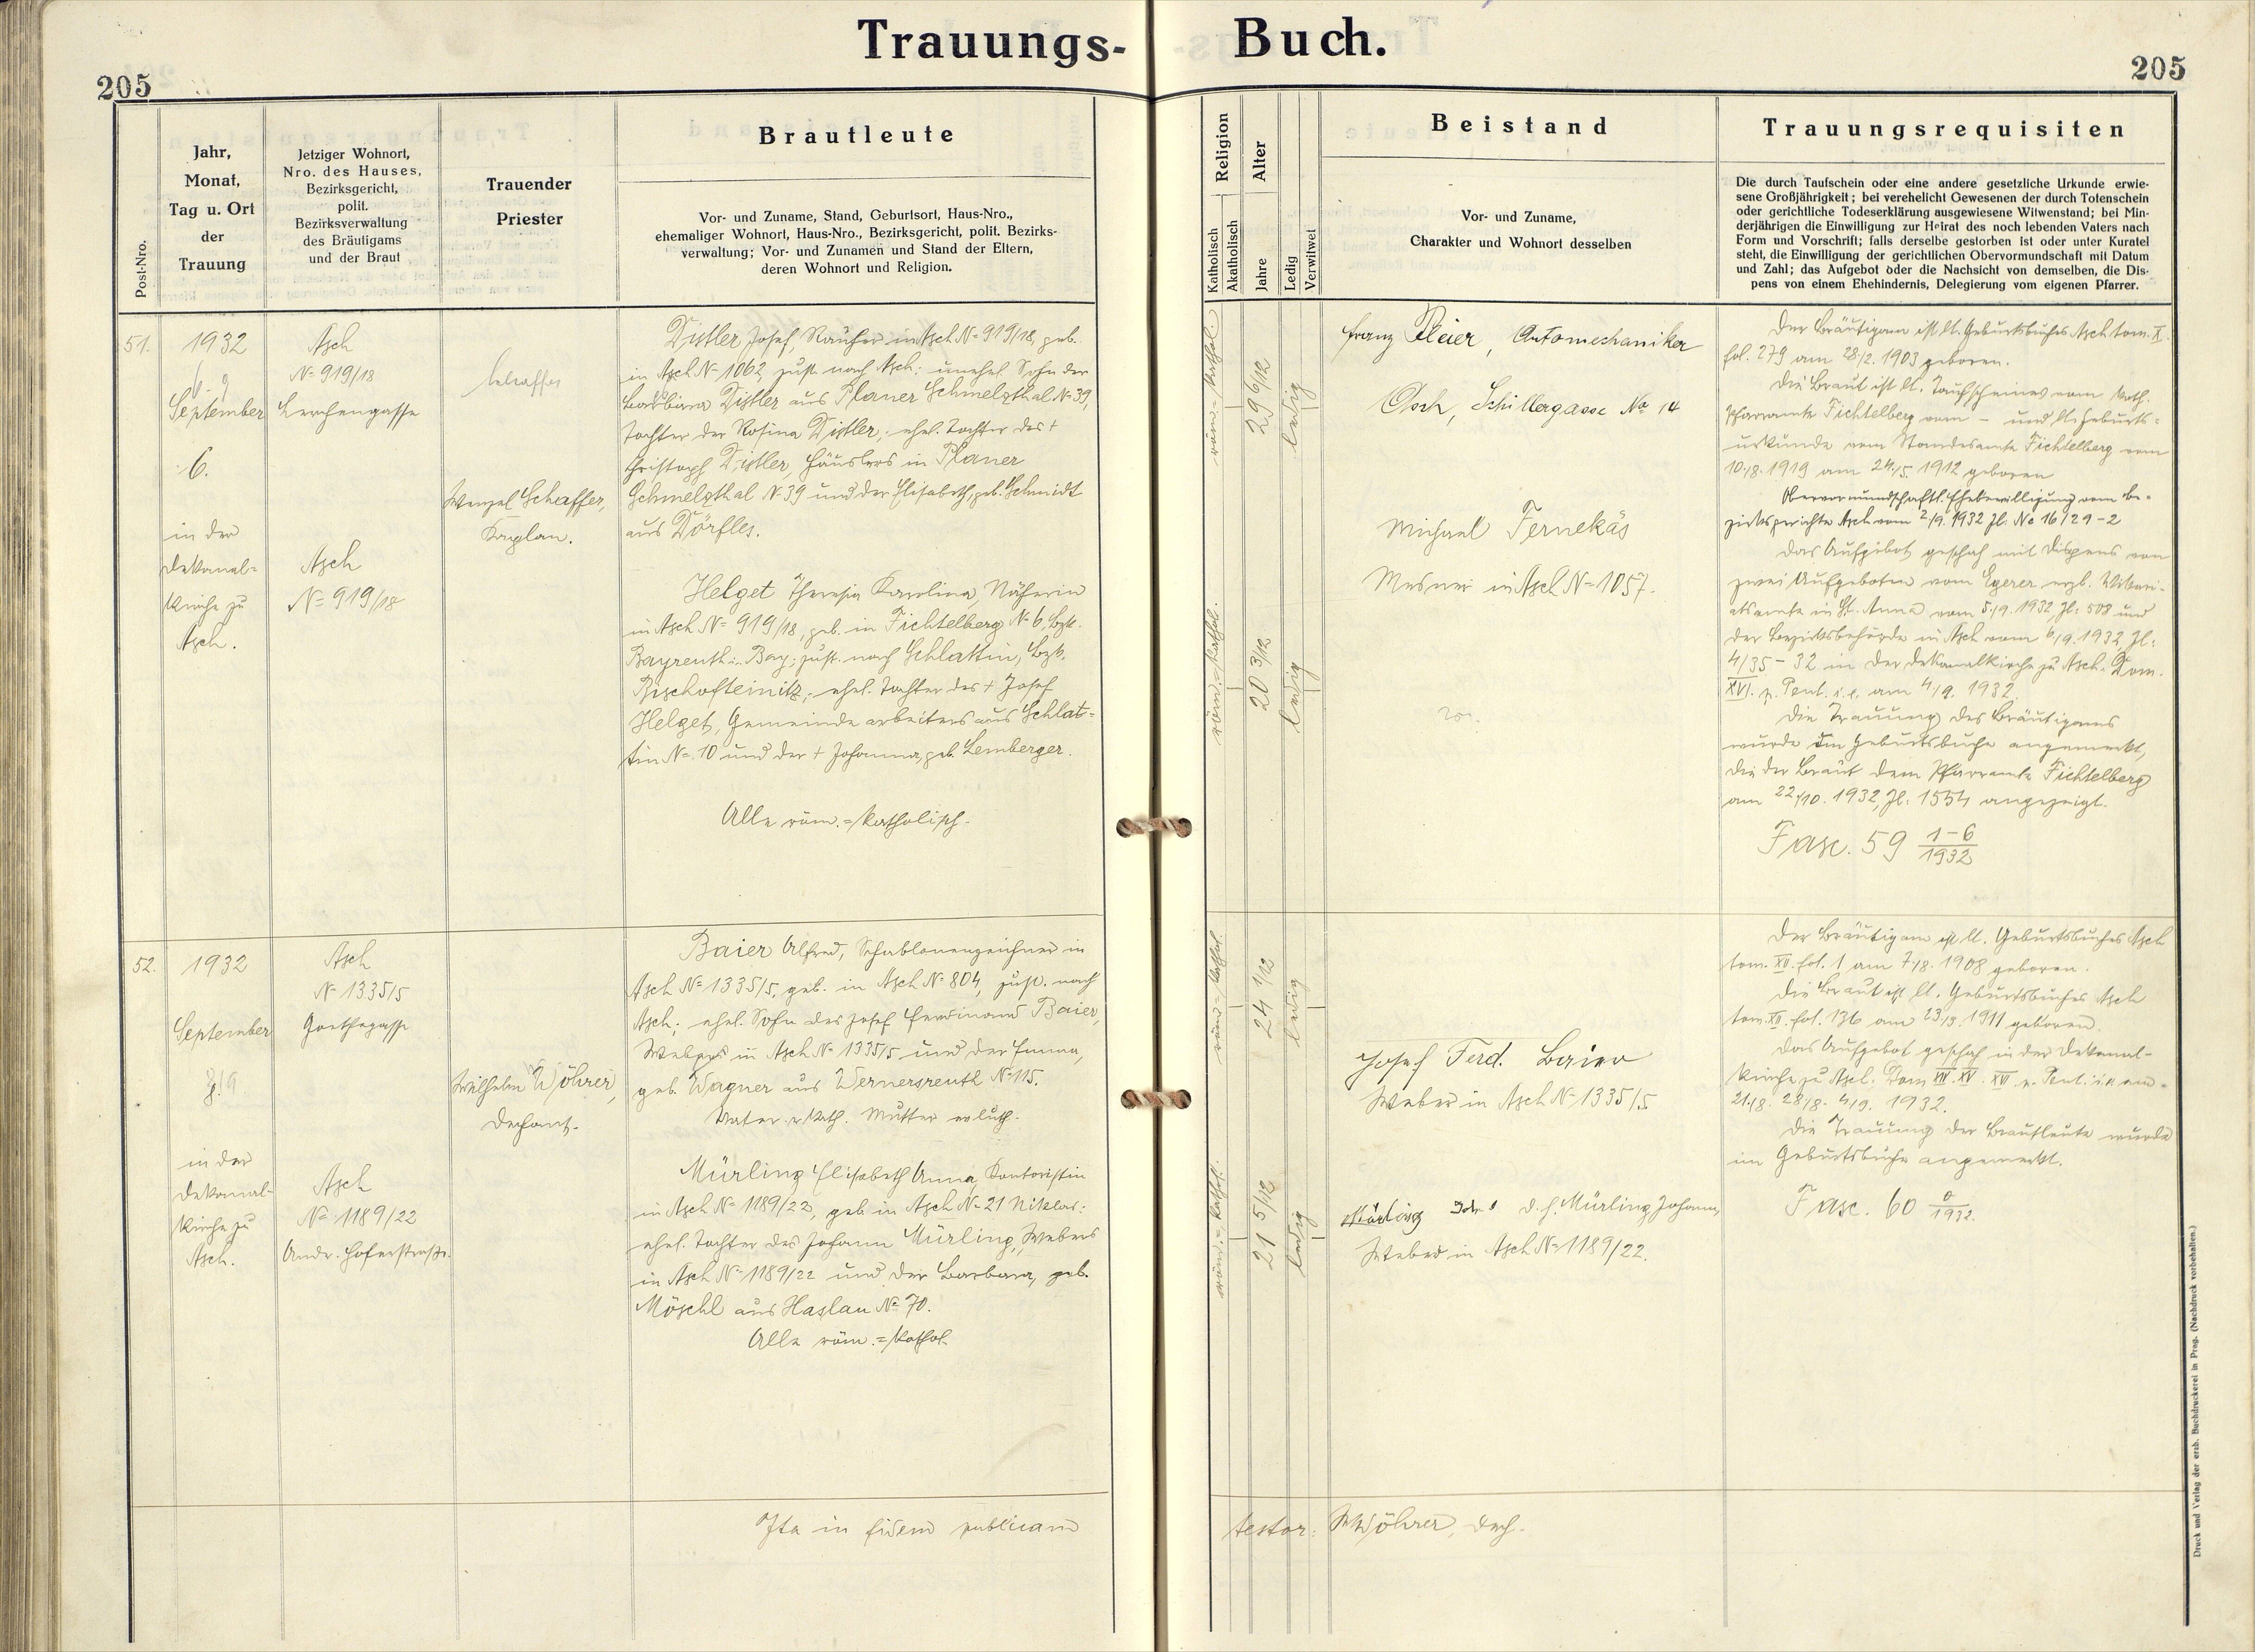 Trauungs-
Buch.
205
205
Post-Nro.
Jahr,
Monat,
Tag u. Ort
der
Trauung
Jetziger Wohnort,
Nro. des Hauses,
Bezirksgericht,
polit.
Bezirksverwaltung
des Bräutigams
und der Braut
Trauender
Priester
Brautleute
Vor- und Zuname, Stand, Geburtsort, Haus-Nro.,
ehemaliger Wohnort, Haus-Nro., Bezirksgericht, polit. Bezirks-
verwaltung; Vor- und Zunamen und Stand der Eltern,
deren Wohnort und Religion.
Religion
Katholisch
Akatholisch
Alter
Jahre
Ledig
Verwitwet
Beistand
Vor- und Zuname,
Charakter und Wohnort desselben
Trauungsrequisiten
Die durch Taufschein oder eine andere gesetzliche Urkunde erwie-
sene Großjährigkeit; bei verehelicht Gewesenen der durch Totenschein
oder gerichtliche Todeserklärung ausgewiesene Witwenstand; bei Min-
derjährigen die Einwilligung zur Heirat des noch lebenden Vaters nach
Form und Vorschrift; falls derselbe gestorben ist oder unter Kuratel
steht, die Einwilligung der gerichtlichen Obervormundschaft mit Datum
und Zahl; das Aufgebot oder die Nachsicht von demselben, die Dis-
pens von einem Ehehindernis, Delegierung vom eigenen Pfarrer.
51.
1932
September
6.
in der
Dekanal-
kirche zu
Asch.
Asch
N= 919/18
Lerchengasse
Asch
N= 919/18
Schaffer
Wenzel Schaffer,
Kaplan.
Distler Josef, Käufer in Asch N= 919/18, geb.
in Asch N= 1062, zust. nach Asch; unehel. Sohn der
Barbara Distler aus Planer Schmelzthal N= 39,
Tochter der Rosina Distler; ehel. Tochter des +
Christoph Distler, Häuslers in Planer
Schmelzthal N= 39 und der Elisabeth, geb. Schmidt
aus Dörfles.
Helget Theresia Karolina, Näherin
in Asch N= 919/18, geb. in Fichtelberg N= 6, Bzk.
Bayreuth i. Bay; zust. nach Schlattin, Bzk.
Bischofteinitz; ehel. Tochter des + Josef
Helget, Gemeindearbeiters aus Schlat-
tin N= 10 und der + Johanna, geb. Lemberger.
Alle röm.=katholisch.
röm.=kathol.
29 6/12
ledig
röm.=kathol.
20 3/12
ledig
Franz Pleier, Automechaniker
Asch, Schillergasse No 14
Michael Fernekäs
Mesner in Asch N= 1057.
Der Bräutigam ist lt. Geburtsbuches Asch tom. X.
fol. 279 am 28/2. 1903 geboren.
Die Braut ist lt. Taufscheines vom kath.
Pfarramte Fichtelberg vom – und lt. Geburts-
urkunde vom Standesamte Fichtelberg vom
10./8. 1919 am 24./5. 1912 geboren
Obervormundschaftl. Ehebewilligung vom Be-
zirksgerichte Asch vom 2/9. 1932 Zl. Nc 16/29-2
Das Aufgebot geschah mit Dispens von
zwei Aufgeboten vom Egerer erzb. Vikari-
atsamte in St. Anna vom 5./9. 1932, Zl: 508 und
der Bezirksbehörde in Asch vom 6/9. 1932, Zl:
4/35-32 in der Dekanalkirche zu Asch. Dom.
XVI. p. Pent. i.e. am 4/9. 1932.
Die Trauung des Bräutigams
wurde im Geburtsbuche angemerkt,
die der Braut dem Pfarramte Fichtelberg
am 22/10. 1932, Zl: 1554 angezeigt.
Fasc. 59 1-6/1932
52.
1932
September
in der
Dekanal-
kirche zu
Asch.
Asch
N= 1335/5
Goethegasse
Asch
N= 1189/22
Andr. Hoferstraße.
Wilhelm Wöhrer,
Dechant.
Baier Alfred, Schablonenzeichner in
Asch N= 1335/5, geb. in Asch N= 804, zust. nach
Asch; ehel. Sohn des Josef Ferdinand Baier,
Webers in Asch N= 1335/5 und der Emma,
geb. Wagner aus Wernersreuth N= 115.
Vater r. kath. Mutter ev. luth.
Mürling Elisabeth Anna, Kontoristin
in Asch N= 1189/22, geb. in Asch N= 21 Niklas:
ehel. Tochter des Johann Mürling, Webers
in Asch N= 1189/22 und der Barbara, geb.
Möschl aus Haslau N= 70.
Alle röm.=kathol.
röm.=kathol.
24 1/12
ledig
röm.=kathol.
21 5/12
ledig
Josef Ferd. Baier
Weber in Asch N= 1335/5
Mürling Joh. d. h. Mürling Johann,
Weber in Asch N= 1189/22.
Der Bräutigam ist lt. Geburtsbuches Asch
tom. XII. fol. 1 am 7./8. 1908 geboren.
Die Braut ist lt. Geburtsbuches Asch
tom. XII. fol. 136 am 23/3. 1911 geboren.
Das Aufgebot geschah in der Dekanal-
kirche zu Asch. Dom XIV. XV. XVI p. Pent. i.e. am
21./8. 28/8. 4/9. 1932.
Die Trauung der Brautleute wurde
im Geburtsbuche angemerkt.
Fasc. 60 0/1932.
Ita in fidem publicam
testor: WWöhrer, Dech.
Druck und Verlag der erzb. Buchdruckerei in Prag. (Nachdruck vorbehalten.)